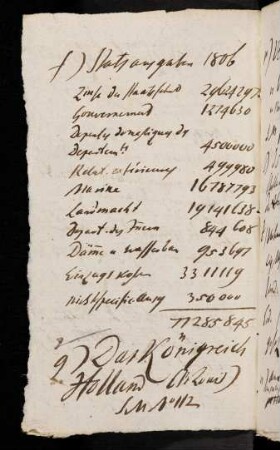 f) Statsausgaben 1806
Zinse der Staatsschuld 29624297
Gouvernement 1274630
Depenses domestiques des
Departemts 4500000
Relat. exterieures 499980
Marine 16787793
Landmacht 19141638
Depart. des Innern 844608
Dämme u Wasserbau 953697
Einzugskosten 3311119
nicht specificierung 350000
77285845.
g) Das Königreich
Holland (K. Louis)
S. M. No 112